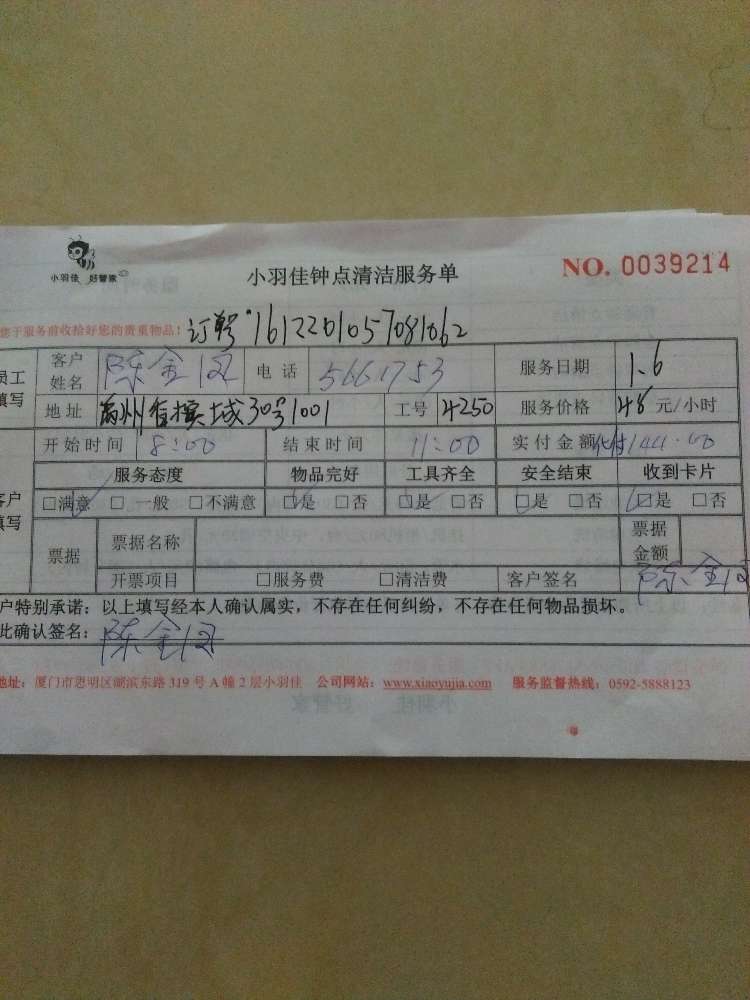 小羽佳 好管家
小羽佳钟点清洁服务单
NO. 0039214
您于服务前收拾好您的贵重物品!
订单号:1612201057081062
员工填写 客户姓名 陈金 电话 5661753 服务日期 1.6
地址 30号1001 工号 4250 服务价格 48 元/小时
开始时间 8:00 结束时间 11:00 实付金额 144.00
服务态度 物品完好 工具齐全 安全结束 收到卡片
客户填写 □满意 □一般 □不满意 □是 □否 □是 □否 □是 □否 □是 □否
票据 票据名称 票据金额
开票项目 □服务费 □清洁费 客户签名 陈金
户特别承诺:以上填写经本人确认属实,不存在任何纠纷,不存在任何物品损坏。
此确认签名: 陈金
地址:厦门市思明区湖滨东路 319 号 A 幢 2 层小羽佳 公司网站:www.xiaoyujia.com 服务监督热线:0592-5888123